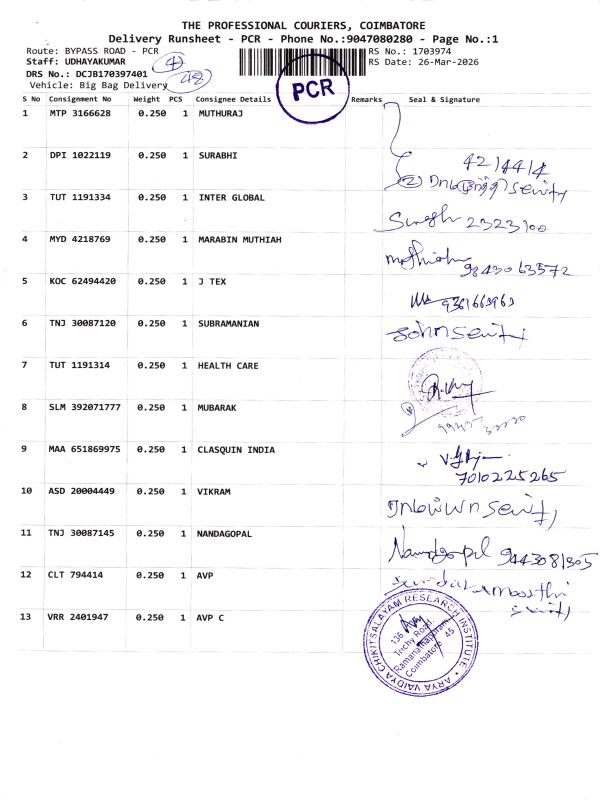 THE PROFESSIONAL COURIERS, COIMBATORE
Delivery Runsheet - PCR - Phone No.:9047080280 - Page No.:1
Route: BYPASS ROAD - PCR
RS No.: 1703974
Staff: UDHAYAKUMAR
RS Date: 26-Mar-2026
DRS No.: DCJB170397401
Vehicle: Big Bag Delivery
48
PCR
S No Consignment No Weight PCS Consignee Details Remarks Seal & Signature
1 MTP 3166628 0.250 1 MUTHURAJ
2 DPI 1022119 0.250 1 SURABHI
3 TUT 1191334 0.250 1 INTER GLOBAL
2323100
4 MYD 4218769 0.250 1 MARABIN MUTHIAH
9843063572
5 KOC 62494420 0.250 1 J TEX
9361663963
6 TNJ 30087120 0.250 1 SUBRAMANIAN
7 TUT 1191314 0.250 1 HEALTH CARE
8 SLM 392071777 0.250 1 MUBARAK
9 MAA 651869975 0.250 1 CLASQUIN INDIA
7010225265
10 ASD 20004449 0.250 1 VIKRAM
11 TNJ 30087145 0.250 1 NANDAGOPAL
Nandagopal 9443081305
12 CLT 794414 0.250 1 AVP
13 VRR 2401947 0.250 1 AVP C
ARYA VAIDYA CHIKITSALAYAM RESEARCH INSTITUTE
136
Trichy Road
Ramanathapuram
Coimbatore 45